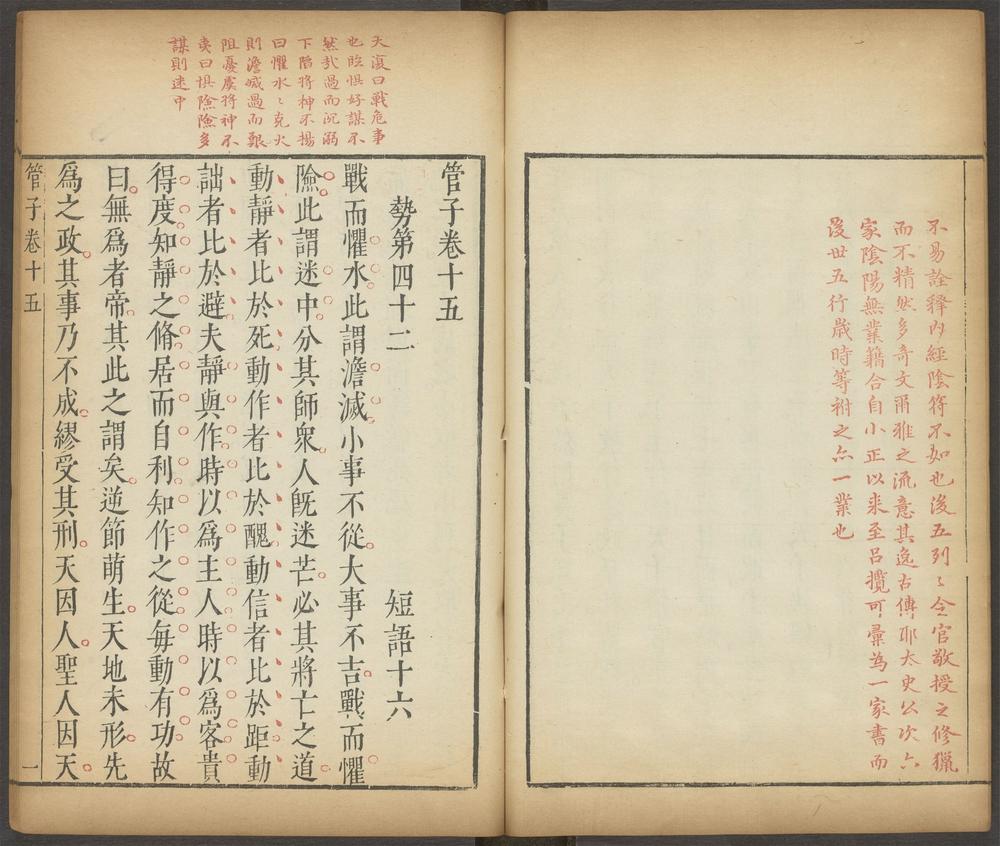 不易詮釋內經陰符不如也後五列〻令官敬授之修獵
而不精然多奇文爾雅之流意其逸古傳耶太史公次六
家陰陽無業籍合自小正以來至呂攬可彙為一家書而
後世五行歲時等祔之亦一業也
天復曰戰危事
也臨懼好謀不
然哉過而沉溺
下陷將神不揚
曰懼水〻克火
則澹滅過而艱
阻憂虞將神不
爽曰惧險險多
謀則迷中
管子卷十五
勢第四十二 短語十六
戰而懼水此謂澹滅小事不從大事不吉戰而懼
險此謂迷中分其師衆人旣迷芒必其將亡之道
動靜者比於死動作者比於醜動信者比於距動
詘者比於避夫靜與作時以爲主人時以爲客貴
得度知靜之脩居而自利知作之從每動有功故
曰無爲者帝其此之謂矣逆節萌生天地未形先
爲之政其事乃不成繆受其刑天因人聖人因天
管子卷十五 一